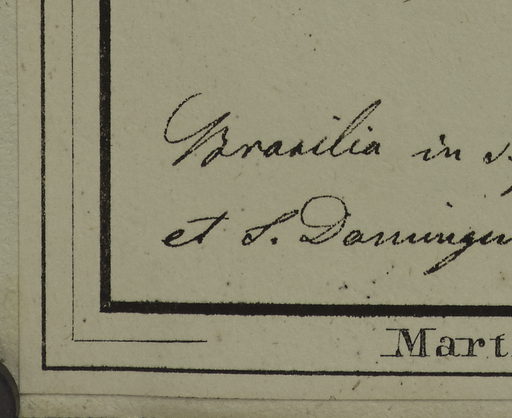 Brasilia in
et S. Domingu
Mart